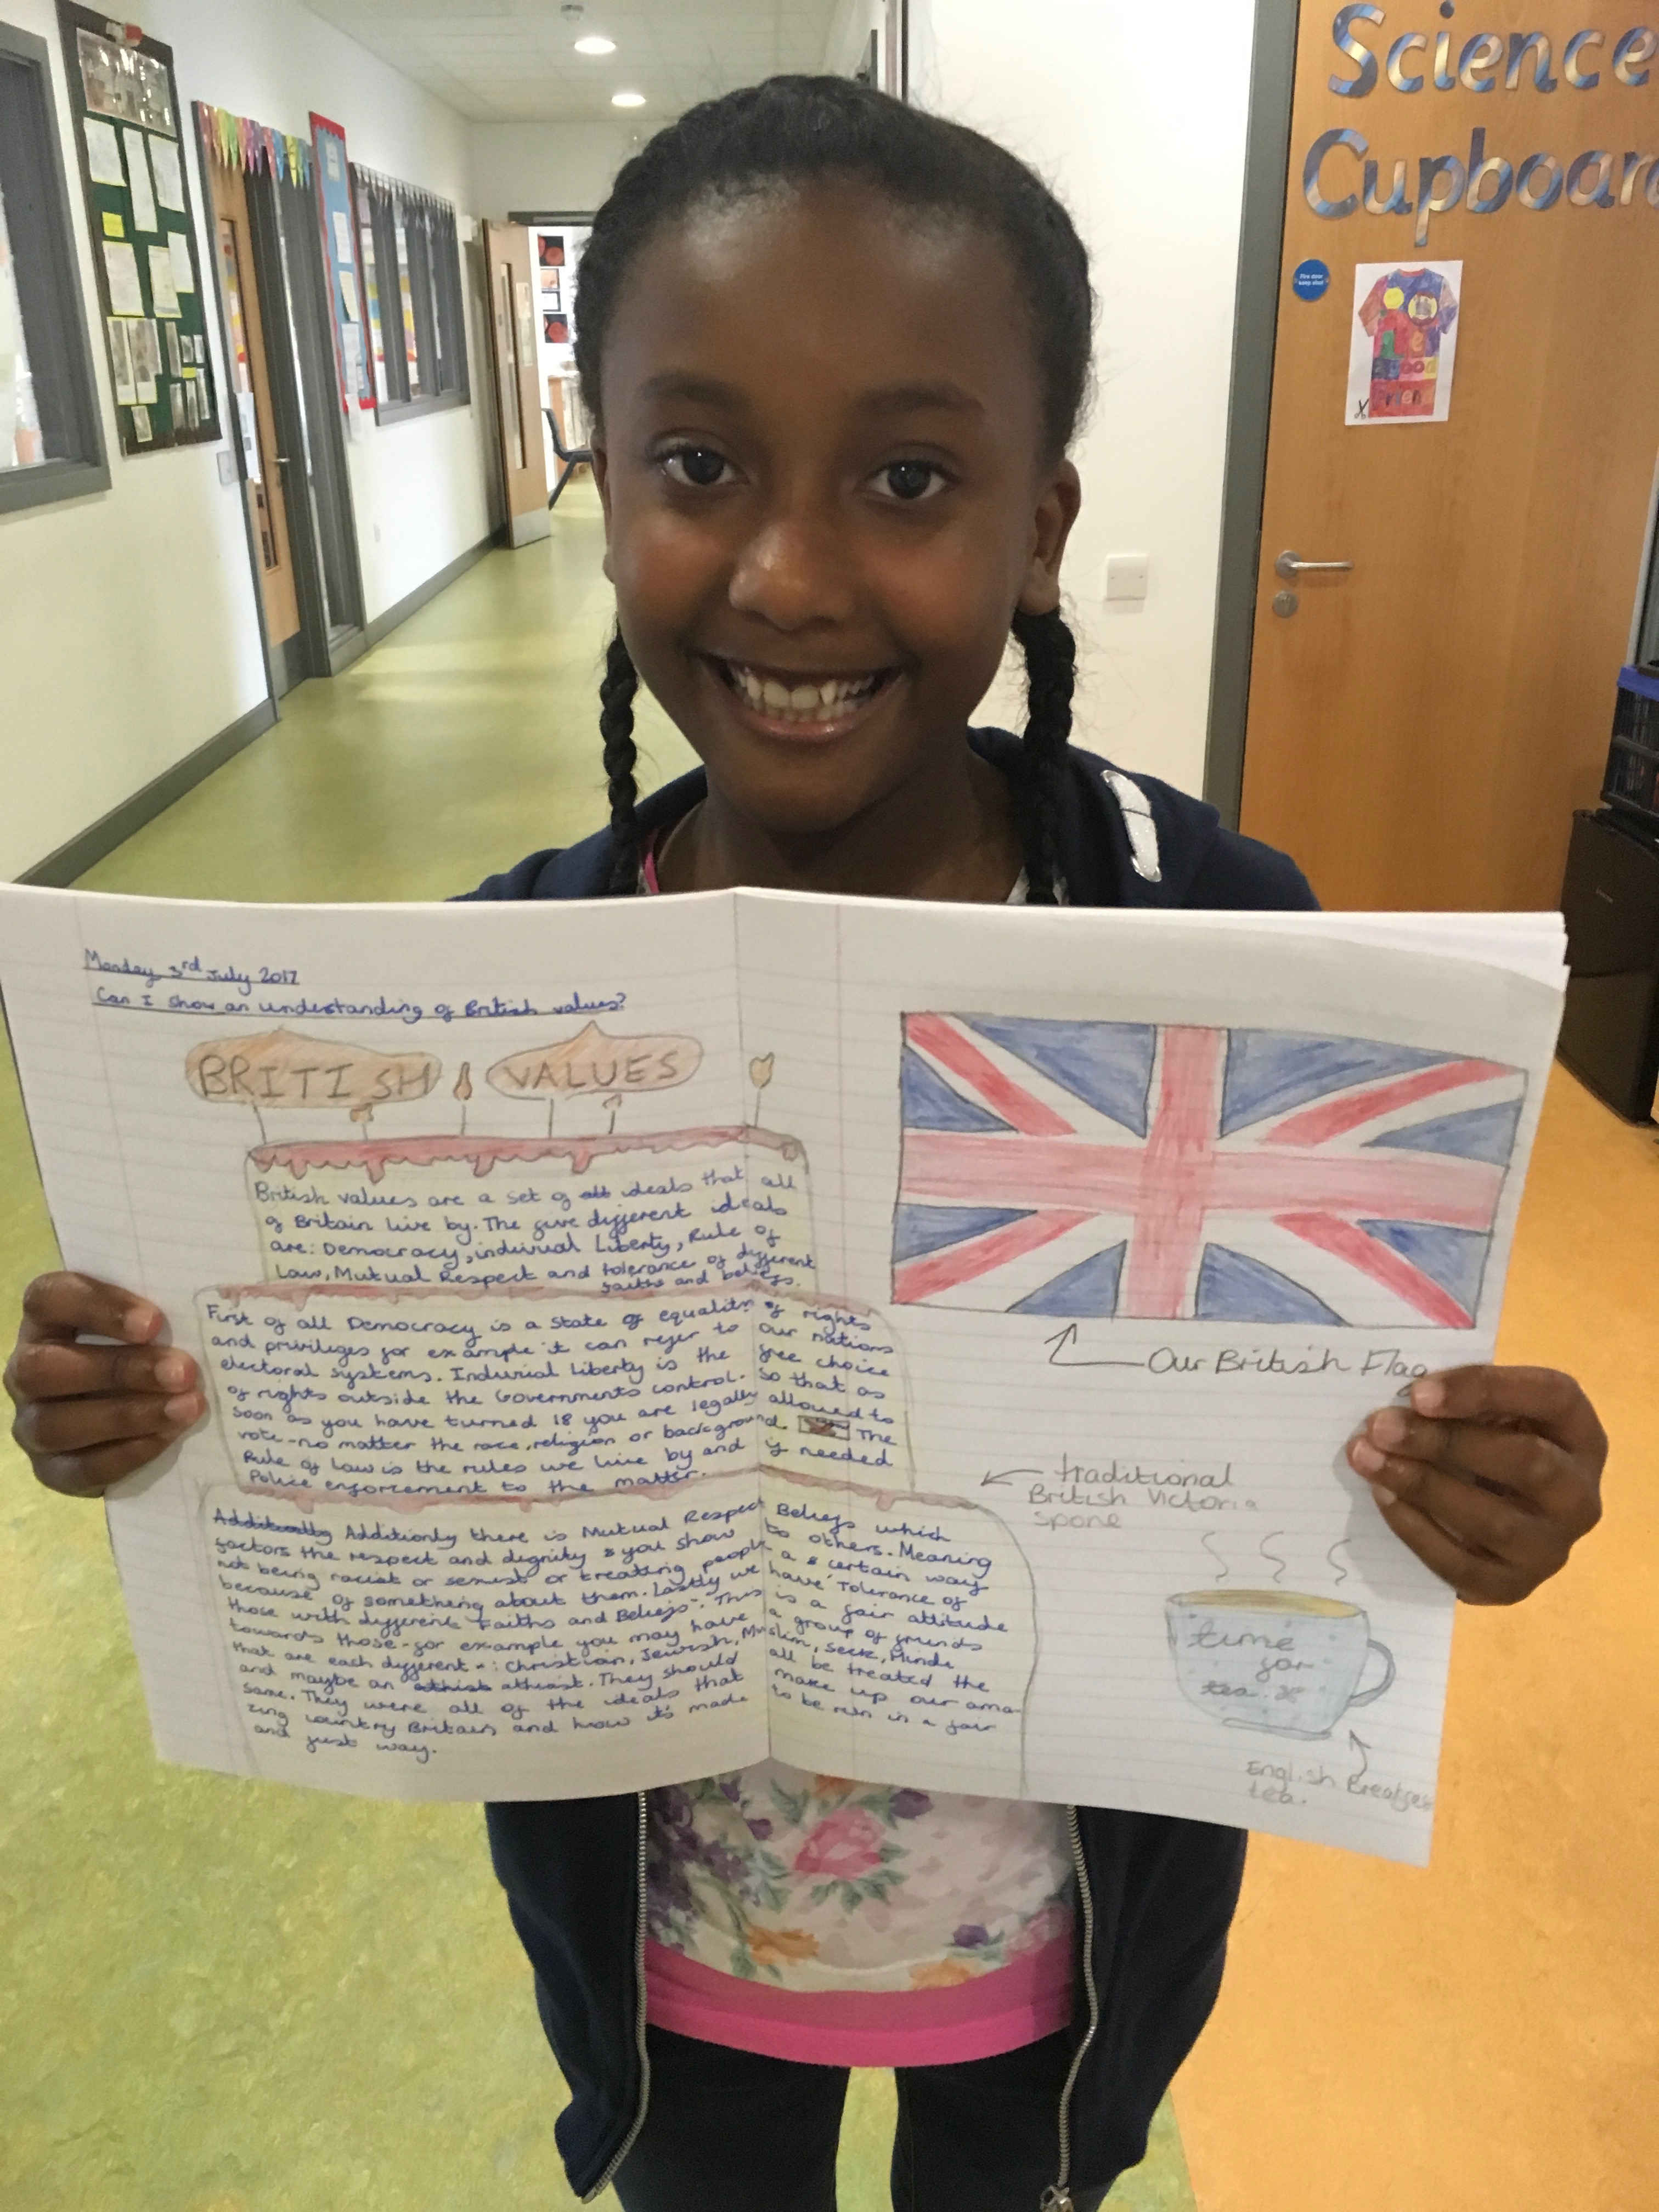 Science
Cupboard
Fire door
keep shut
Monday 3rd July 2017
Can I show an understanding of British values?
BRITISH VALUES
British values are a set of all ideals that all
of Britain live by. The five different ideals
are: Democracy, indiviual Liberty, Rule of
Law, Mutual Respect and tolerance of different
faiths and beliefs.
First of all Democracy is a state of equality of rights
and privileges for example it can refer to our nations
electoral systems. Indivial Liberty is the free choice
of rights outside the Governments control. So that as
soon as you have turned 18 you are legally allowed to
vote - no matter the race, religion or background. The
Rule of Law is the rules we live by and if needed
Police enforcement to the matter.
Additionally Additionly there is Mutual Respect Beliefs which
factors the respect and dignity you show to others. Meaning
not being racist or sexist or treating people a certain way
because of something about them. Lastly we have Tolerance of
those with different Faiths and Beliefs. This is a fair attitude
towards those - for example you may have a group of friends
that are each different - : Christian, Jewish, Muslim, Seek, Hindu
and maybe an athist atheast. They should all be treated the
same. They were all of the ideals that make up our ama-
zing country Britain and how it's made to be run in a fair
and just way.
Our British Flag
traditional
British Victoria
spone
time
for
tea.
English Breakfast
tea.